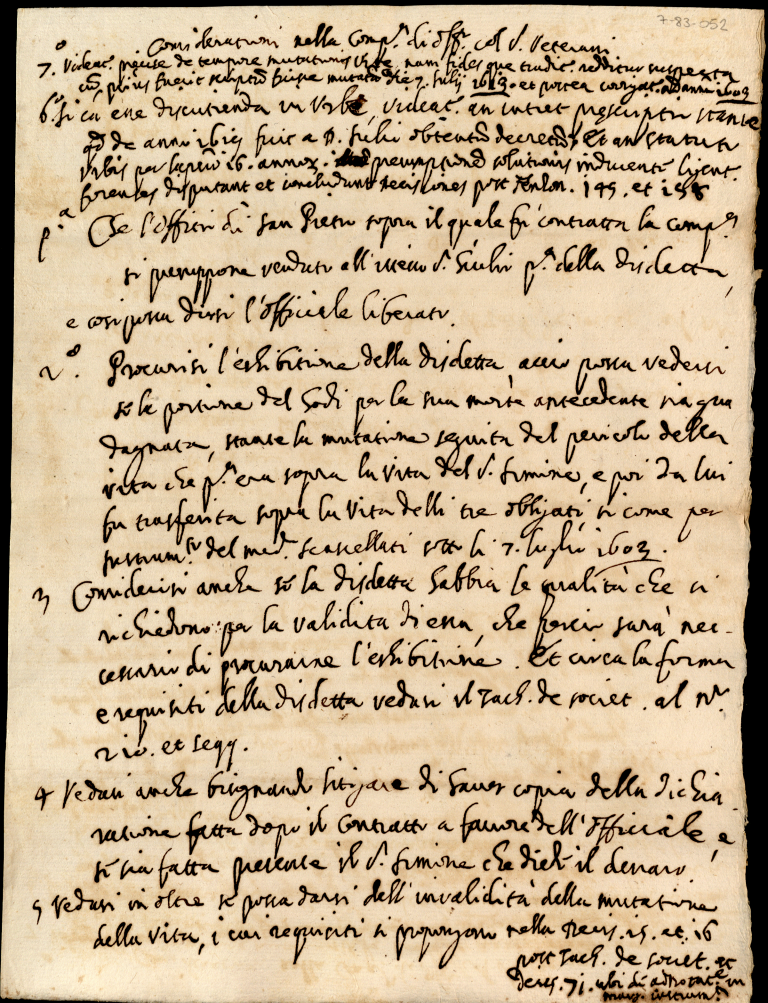 7-83-052
Considerationi nella Comp.a di off.o col S. Veterani
7.o Videat. precise de tempore mutationis vitę, nam fides que tradit. redditur suspecta
prius fuerit scriptū fuisse mutatā die 7. Julij 1613. et postea corrigat. ad anni 1603
6.o si ca esse discutienda in Urbe, videat. an intret prescriptio stante
qd de anni 1619 fuit a D. Julio obtentū decretū, et an statuti
Urbis per lapsū 16. annor. presumptionē solutionis inducente
forenses disputant et concludunt decisiones post Zenlon. 145. et 158
p.a Che l'offitio di San Pietro sopra il quale fù contratta la comp.a
si presuppone venduto all'istesso S. Giulio p.a della disdetta,
e così possa dirsi l'officiale liberato.
2.o Procurisi l'eshibitione della disdetta, acciò possa vedersi
se la portione del Godi per la sua morte antecedente sia gua
dagnata, stante la mutatione seguita del pericolo della
vita che p.a era sopra la vita del S. Simone, e poi da lui
fu trasferita sopra la Vita delli tre obligati, si come per
instrum.to del med.o Scancellati sotto li 7. luglio 1603.
3 Considerisi anche se la disdetta habbia le qualità che si
richiedono per la validità di essa, che perciò sarà nec-
cessario di procurarne l'eshibitione. Et circa la forma
e requisiti della disdetta vedasi il Zach. de societ. al n.o
210. et seqq.
4 Vedasi anche bisognando litigare di haver copia della dichia
ratione fatta dopo il Contratto a favore dell'officiale, e
se sia fatta presente il S. Simone che diede il denaro.
5 Vedasi inoltre se possa darsi dell'invalidità della mutatione
della vita, i cui requisiti si propongono nella Decis. 15. et. 16
post Zach. de societ. et
Decis. 71. ubi